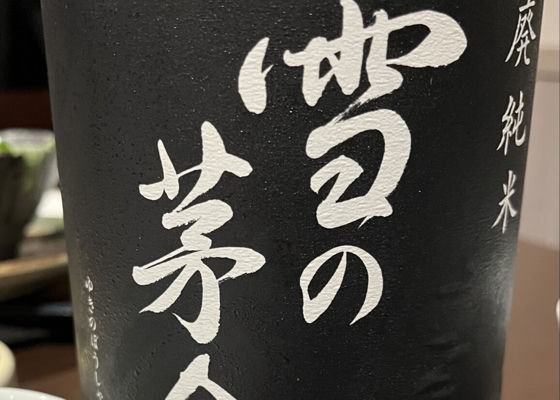 廃純米
雪の
茅
ゆきのぼうし